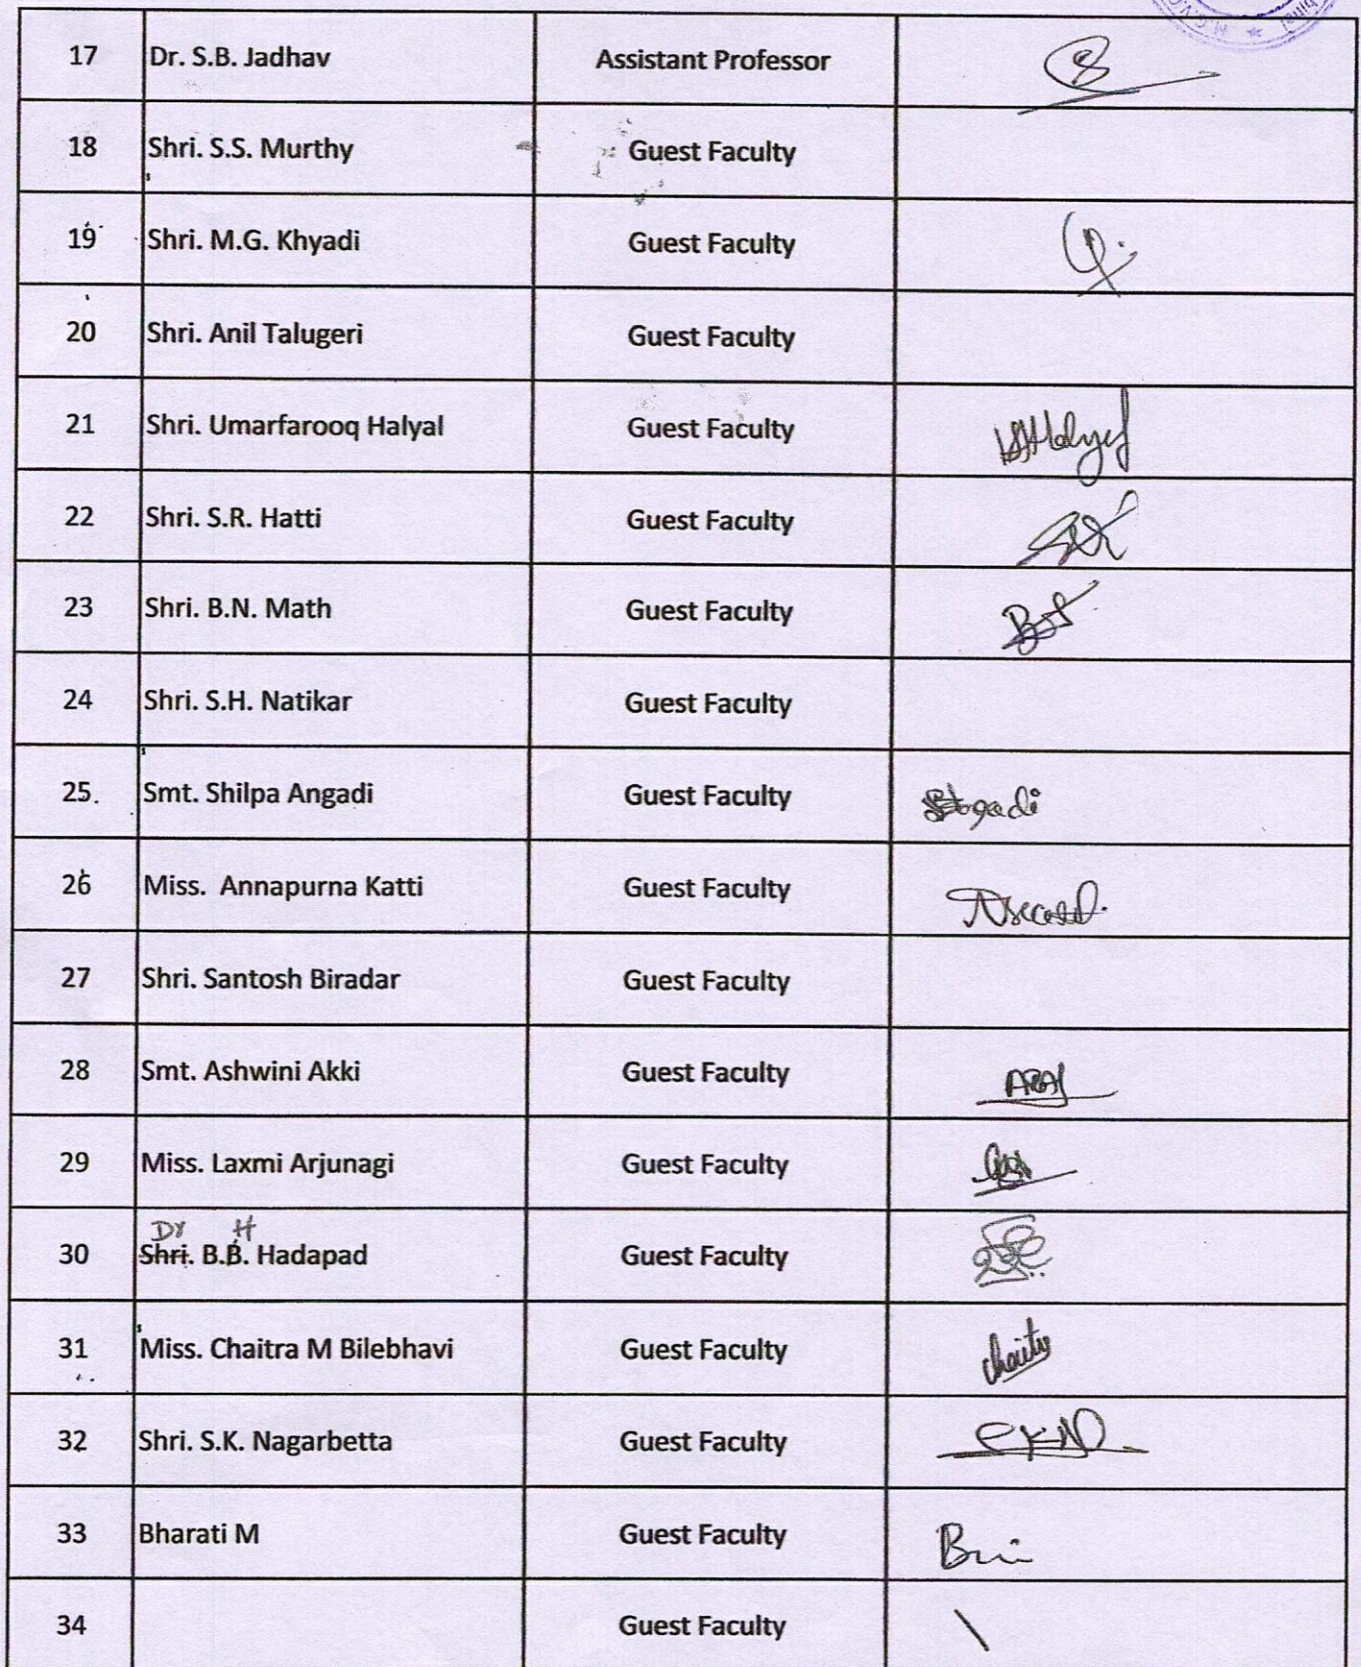 17 Dr. S.B. Jadhav Assistant Professor
18 Shri. S.S. Murthy Guest Faculty
19 Shri. M.G. Khyadi Guest Faculty
20 Shri. Anil Talugeri Guest Faculty
21 Shri. Umarfarooq Halyal Guest Faculty
22 Shri. S.R. Hatti Guest Faculty
23 Shri. B.N. Math Guest Faculty
24 Shri. S.H. Natikar Guest Faculty
25. Smt. Shilpa Angadi Guest Faculty
26 Miss. Annapurna Katti Guest Faculty
27 Shri. Santosh Biradar Guest Faculty
28 Smt. Ashwini Akki Guest Faculty
29 Miss. Laxmi Arjunagi Guest Faculty
Dr H
30 Shri. B.B. Hadapad Guest Faculty
31 Miss. Chaitra M Bilebhavi Guest Faculty
32 Shri. S.K. Nagarbetta Guest Faculty
33 Bharati M Guest Faculty
34 Guest Faculty